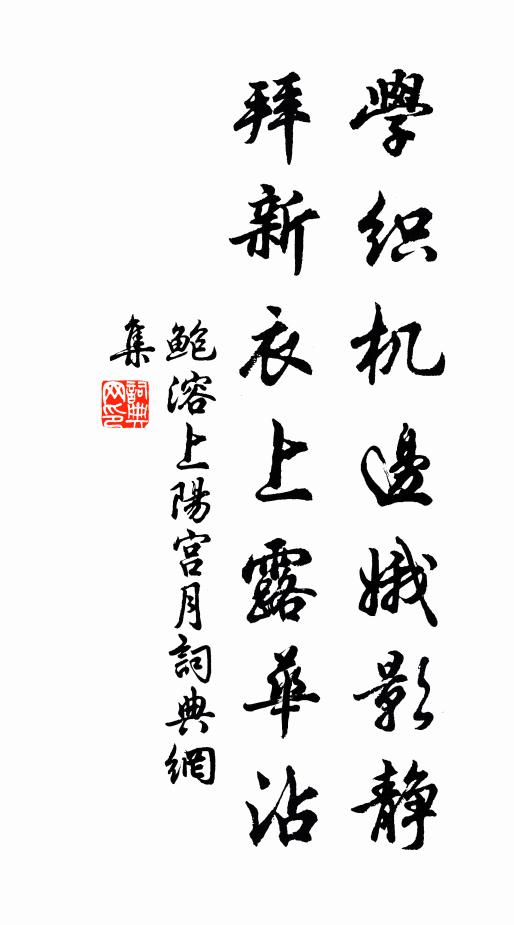 學织机邊娥影静
拜新衣上露華沾
鲍溶上陽宫月詞典網
集
詞典
网印